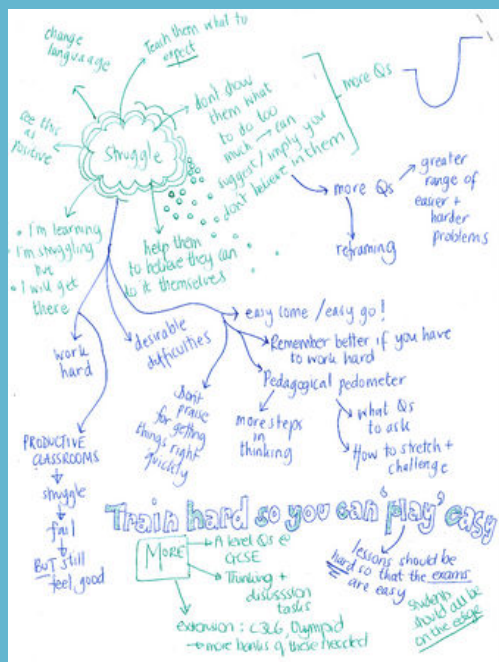 change
language
Teach them what to
expect
see this
as
positive
struggle
don't show
them what
to do too
much → can
suggest / imply you
don't believe in them
more Qs
more Qs
greater
range of
easier +
harder
problems
reframing
• I'm learning
• I'm struggling
but
• I will get
there
help them
to believe they can
do it themselves
work
hard
desirable
difficulties
easy come / easy go!
Remember better if you have
to work hard
Pedagogical pedometer
don't
praise
for getting
things right
quickly
more steps
in
thinking
what Qs
to ask
How to stretch +
challenge
PRODUCTIVE
CLASSROOMS
struggle
fail
BUT still
feel good
Train hard so you can 'play' easy
MORE
A level Qs @
GCSE
Thinking +
discussion
tasks
extension: C3L6, Olympiad
→ more banks of these needed
lessons should be
hard so that the exams
are easy
students
should all be
on the edge